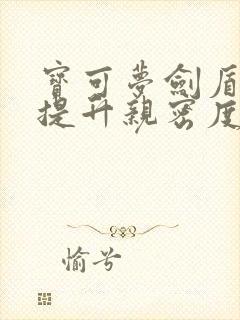 寶可夢劍盾
提升親密度
愉兮